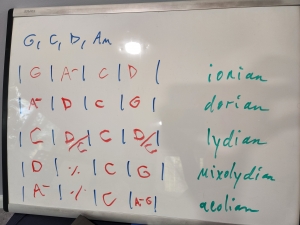 G, C, D, Am
| G | A- | C | D | ionian
| A- | D | C | G | dorian
| C | D/C | C | D/C | lydian
| D | ٪ | C | G | Mixolydian
| A- | ٪ | C | A-G | aeolian